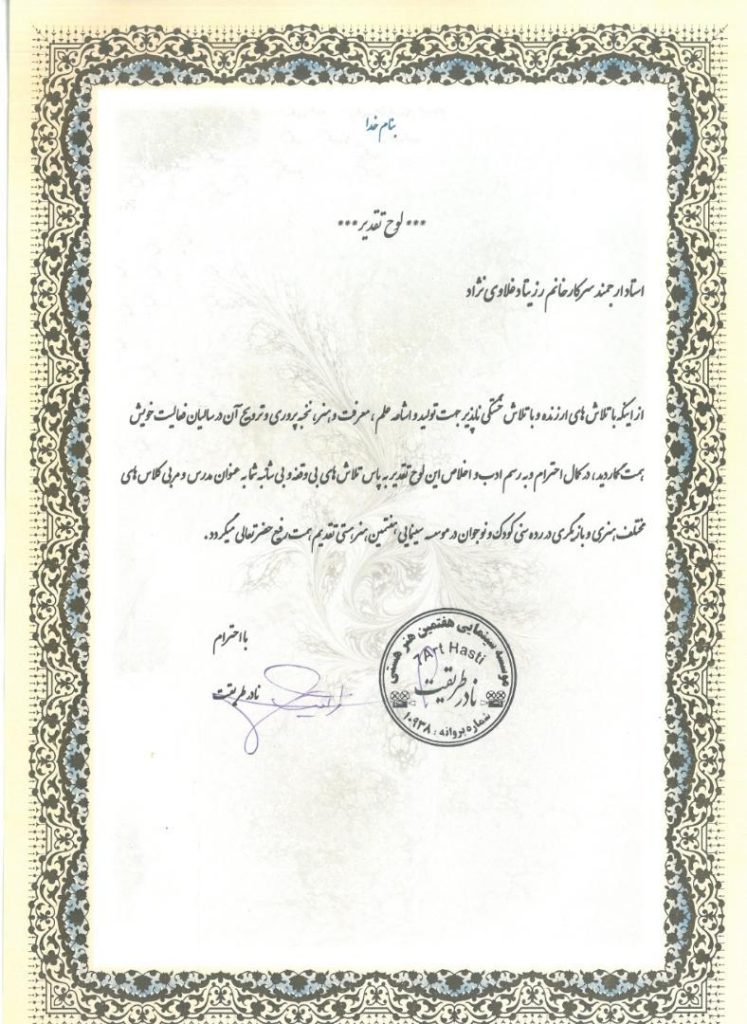 بنام خدا
*** لوح تقدیر ***
استاد ارجمند سرکار خانم رزیتا دغلاوی نژاد
از اینکه با تلاش های ارزنده و با تلاش خستگی ناپذیر جهت تولید و اشاعه علم ، معرفت و هنر، نخبه پروری و ترویج آن در سالیان فعالیت خویش
همت گماردید، در کمال احترام و به رسم ادب و اخلاص این لوح تقدیر به پاس تلاش های بی وقفه و بی شائبه شما به عنوان مدرس و مربی کلاس های
مختلف هنری و بازیگری در رده سنی کودک و نوجوان در موسسه سینمایی هفتمین هنر هستی تقدیم همت رفیع حضرتعالی میگردد.
با احترام
نادر طریقت
موسسه سینمایی هفتمین هنر هستی
7Art Hasti
نادر طریقت
شماره پروانه : ۱۰۹۳۸